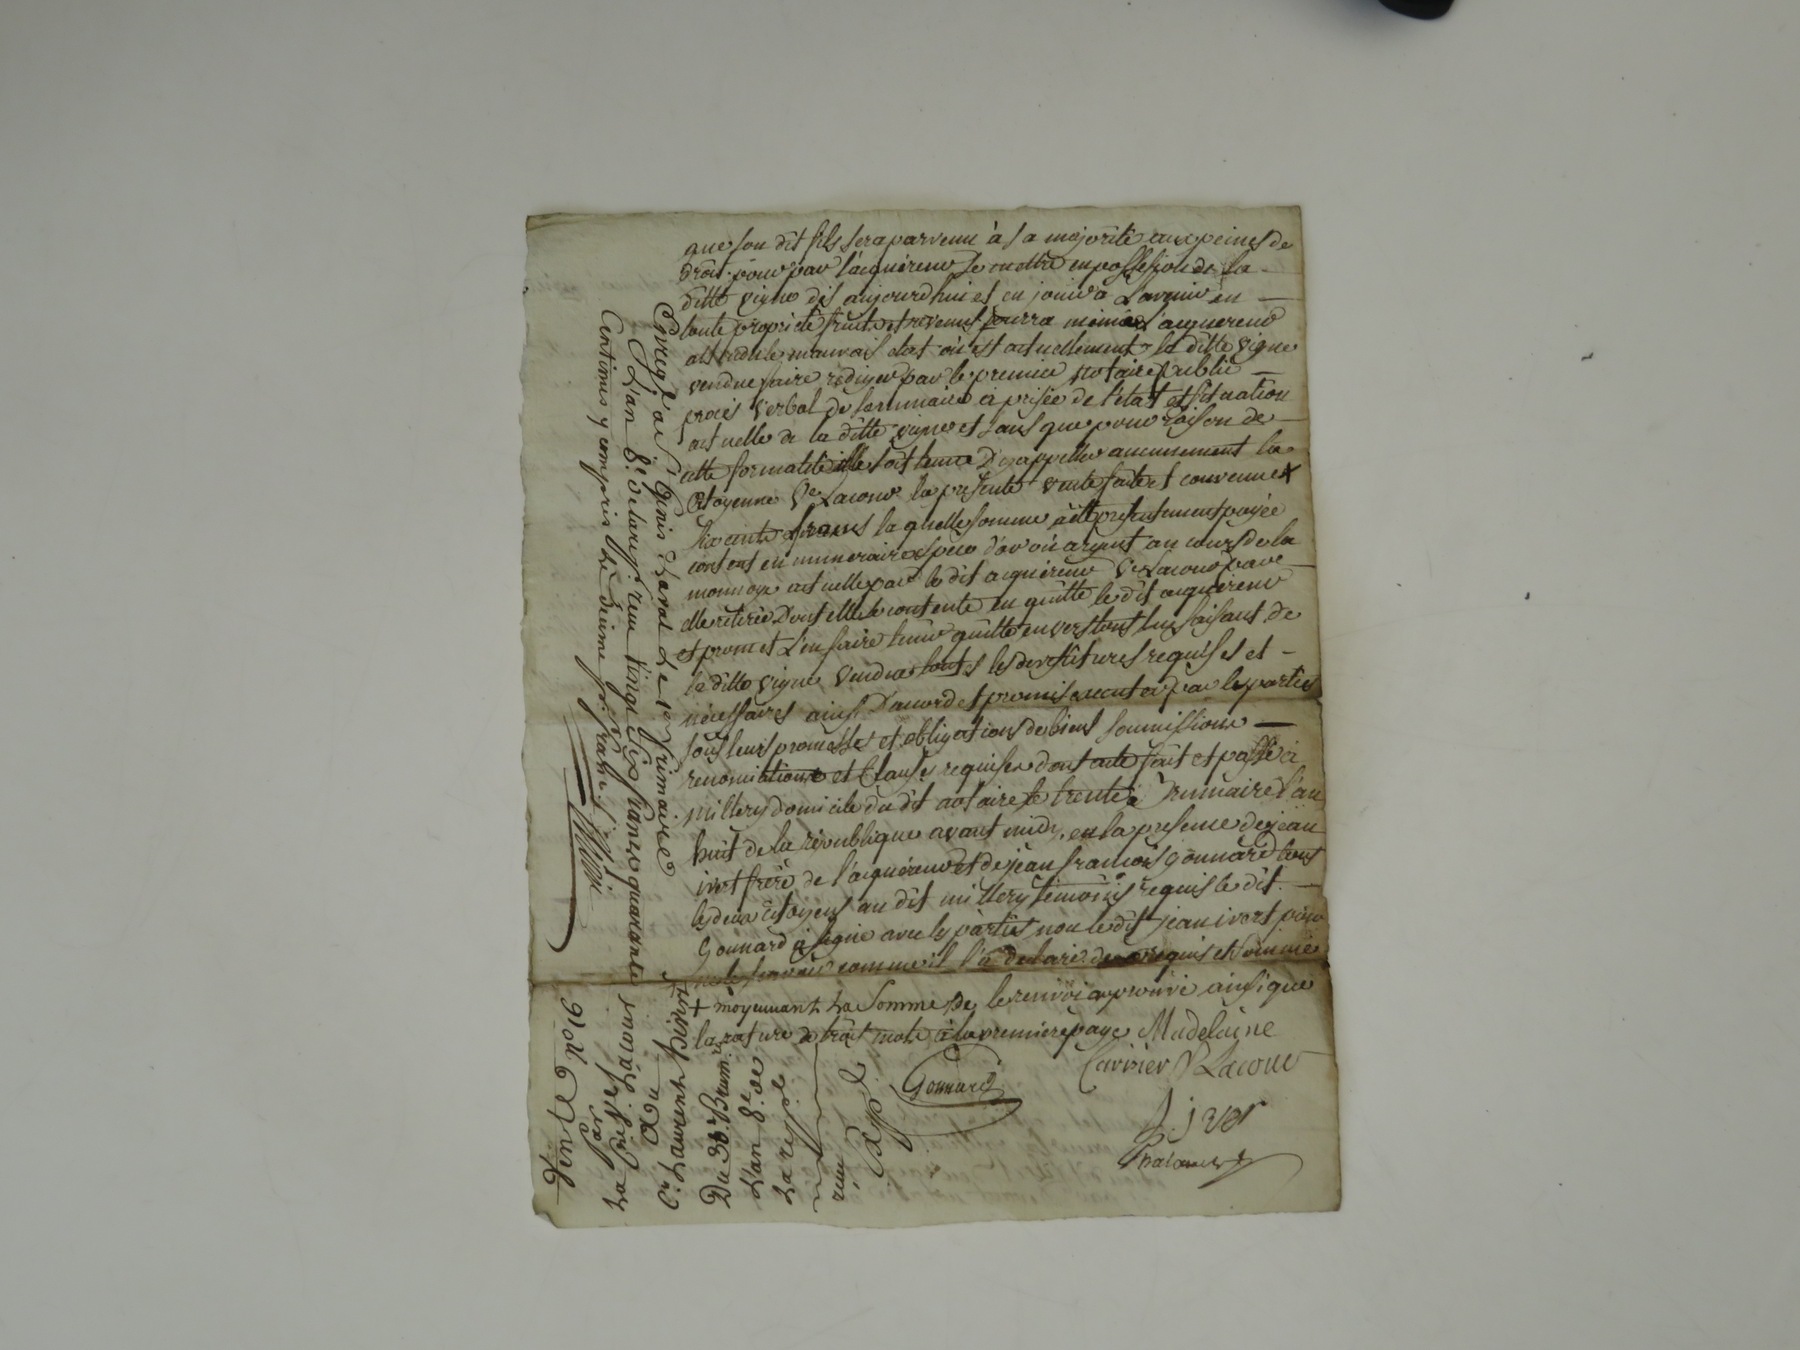 que son dit fils sera parvenu à sa majorité aux peines de
droit. pour par l'acquéreur se mettre en possession de la
ditte vigne dès aujourd'hui et en jouir à l'avenir en
toute propriété fruits et revenus pourra même l'acquereur
attendu le mauvais état où est actuellement la ditte vigne
vendue faire rediger par le premier notaire public
procès verbal de sommaire aprisée de l'état et situation
actuelle de la ditte vigne et sans que pour raison de
cette formalité il soit tenu d'y appeller aucunement la
Citoyenne Ve Lacour la présente vente faite et convenue +
six cents francs la quelle somme a été présentement payée
content en numeraire espece d'or ou argent au cours de la
monnoye actuelle par le dit acquéreur Ve Lacour par
elle retirée dont elle se contente en quitte le dit acquéreur
et promet l'en faire tenir quitte envers tous lui faisant de
la ditte vigne vendue touts les devestitures requises et
nécessaires ainsi d'accord et promis executer par les parties
sous leurs promesses et obligations de biens soumissions
renonciations et clauses requises dont acte fait et passé à
millery domicile du dit notaire le trente brumaire l'an
huit de la république avant midy, en la presence de jean
ivert frère de l'acquéreur et de jean francois gonnard tous
les deux citoyens au dit millery témoins requis le dit
Gonnard a signé avec les parties non le dit jean ivert pour
ne le savoir comme il l'a declaré de ce requis et sommé
+ moyennant la somme de le renvoi approuvé ainsi que
la rature de trois mots à la premiere page Madelaigne
Carrier V Lacour
Gonnard
L. iver
Enregé à St Genis Laval le 1er frimaire
L'an 8e declaré reçu vingt six francs quarante
Centimes y compris le decime pr. franc
Vente
Par
La Cne Ve Lacour
au
Cn Laurent hivert
Du 30 Brumre
L'an 8e de
La repe
Exp.